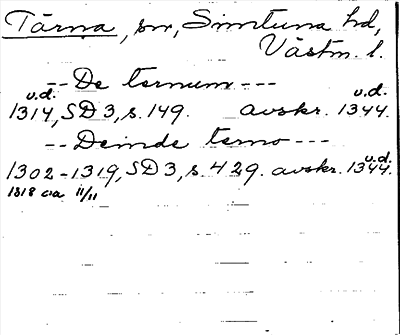 Tärna, sn, Simtuna hd,
Västm. l.
-- De ternum ---
u.d. u.d.
1314, SD 3, s. 149. avskr. 1344.
-- Deinde terno ---
u.d.
1302-1319, SD 3, s. 429. avskr. 1344.
1318 ca 11/11